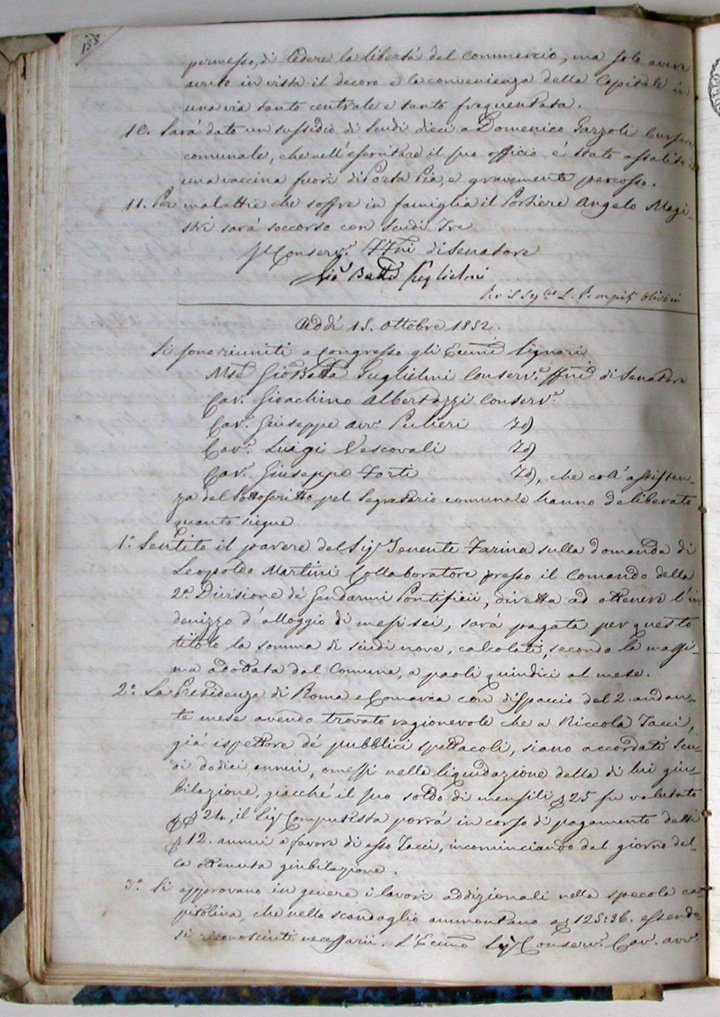 158
permesso, di ledere la libertà del commercio, ma solo avere
avuto in vista il decoro e la convenienza della Capitale in
una via tanto centrale e tanto frequentata.
10. Sarà dato un sussidio di Scudi dieci a Domenico Garzoli
comunale, che nell'esercitare il suo officio è stato assalito
una vaccina fuori di Porta Pia, e gravemente percosso.
11. Per malattie che soffre in famiglia il Portiere Angelo Magi-
stri sarà soccorso con Scudi tre.
Il Conserv.e ff.ni di Senatore
Gio. Batta Guglielmi
Per il Seg.
Addì 15. Ottobre 1852.
Si sono riuniti a Congresso gli Eccmi Signori
Mse Gio Batta Guglielmi Conserv.e ff.ni di Senatore
Cav. Gioachino Albertazzi Conserv.e
Cav. Giuseppe avv. Pulieri Id
Cav. Luigi Vescovali Id
Cav. Giuseppe Forti Id, che coll'assisten-
za del sottoscritto pel Segretario comunale hanno deliberato
quanto siegue
1.° Sentito il parere del Sig. Tenente Farina sulla domanda di
Leopoldo Martini Collaboratore presso il Comando della
2.a Divisione de' Gendarmi Pontificii, diretta ad ottenere l'in-
dennizzo d'alloggio di mesi sei, sarà pagata per questo
titolo la somma di scudi nove, calcolati secondo la massi-
ma adottata dal Comune, a paoli quindici al mese.
2.° La Presidenza di Roma e Comarca con dispaccio del 2. andan-
te mese avendo trovato ragionevole che a Niccola Tacci,
già ispettore de' pubblici spettacoli, siano accordati scu-
di dodici annui, omessi nella liquidazione della di lui giu-
bilazione, giacché il suo soldo di mensili 25 fu valutato
24, il Sig. Computista porrà in corso di pagamento detti
12. annui a favore di esso Tacci, incominciando dal giorno del-
la ottenuta giubilazione.
3.° Si approvano in genere i lavori addizionali nella specola ca-
pitolina, che nello scandaglio ammontano a 125:36. essendo-
si riconosciuti necessarii. L'Eccmo Sig. Conserv.e Cav. avv.